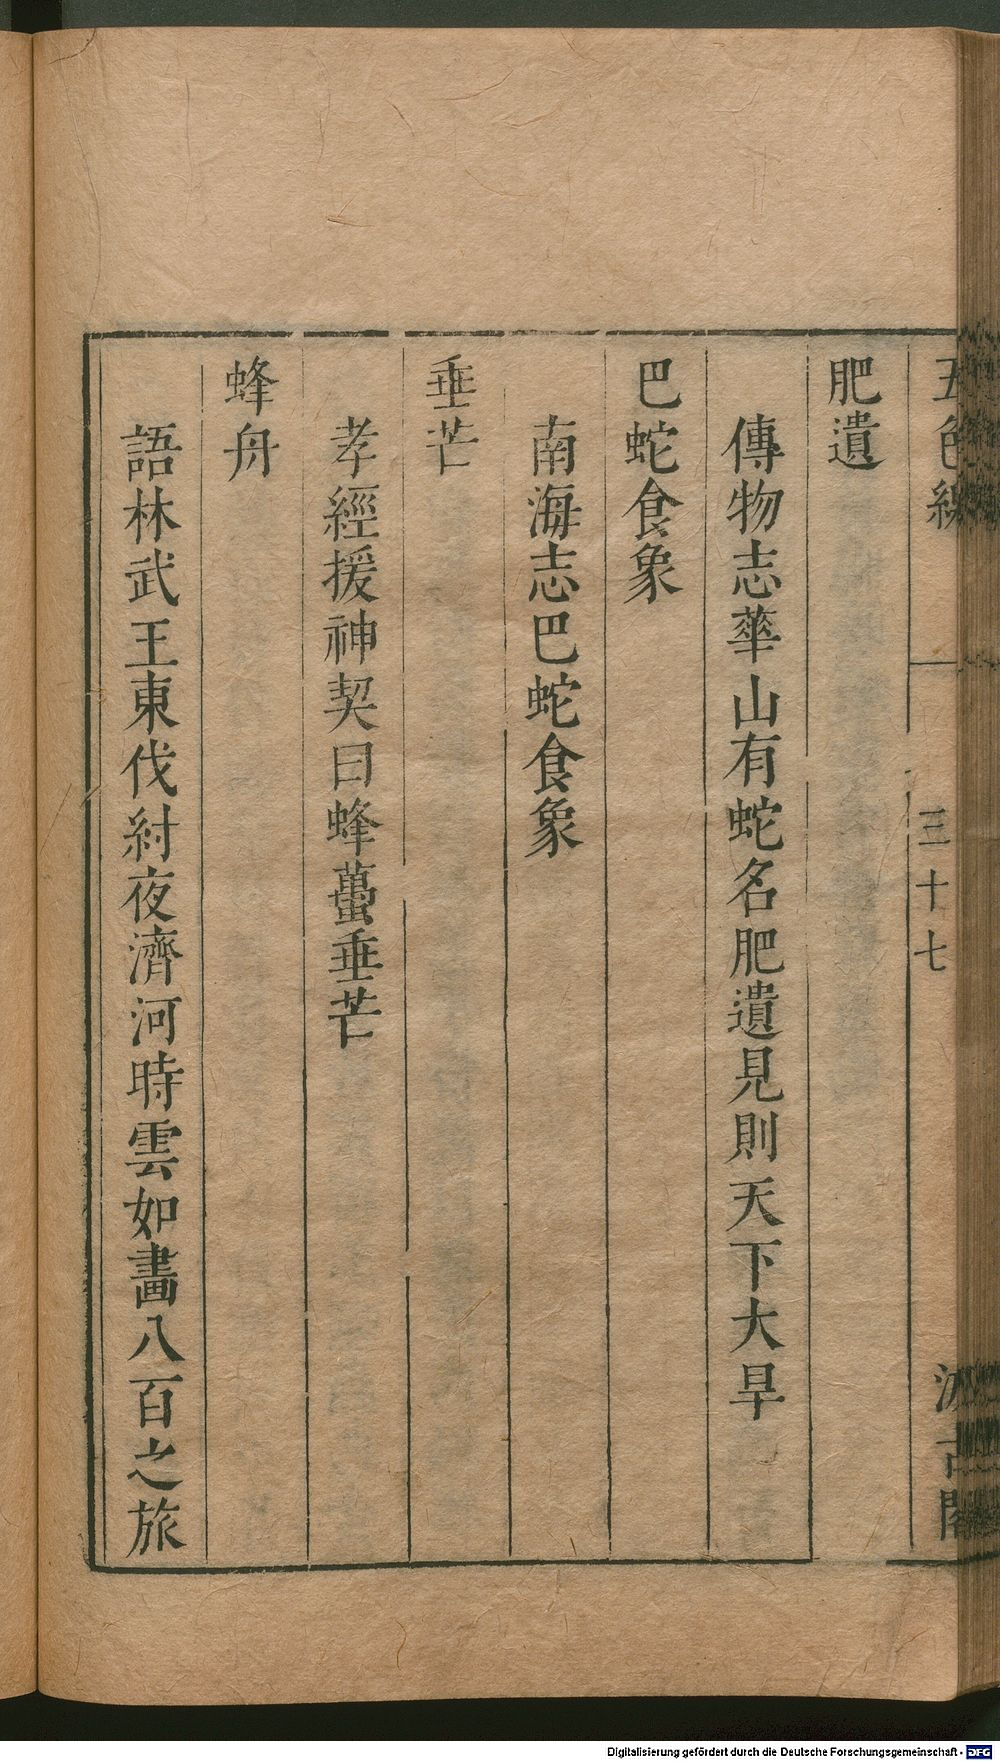 五色線 三十七 汲古閣
肥遺
傳物志華山有蛇名肥遺見則天下大旱
巴蛇食象
南海志巴蛇食象
垂芒
孝經援神契曰蜂蠆垂芒
蜂舟
語林武王東伐紂夜濟河時雲如畫八百之旅
Digitalisierung gefördert durch die Deutsche Forschungsgemeinschaft - DFG